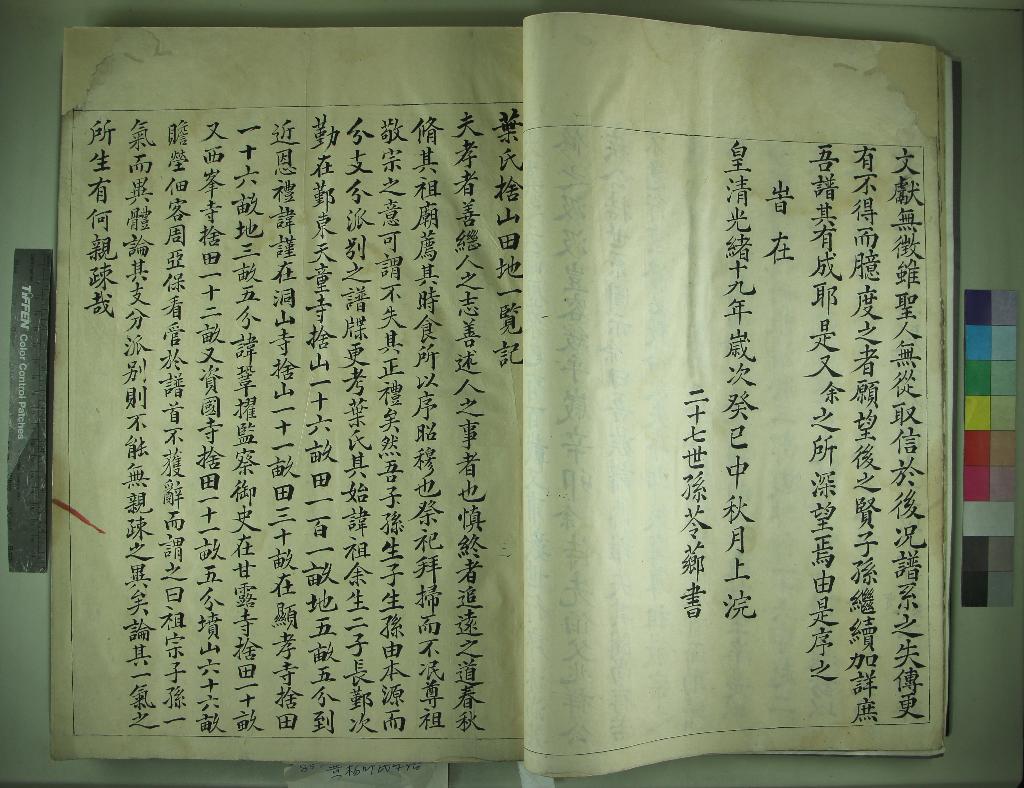 文獻無徵雖聖人無從取信於後况譜系之失傳更
有不得而臆度之者願望後之賢子孫繼續加詳庶
吾譜其有成耶是又余之所深望焉由是序之
旹在
皇清光緒十九年歲次癸巳中秋月上浣
二十七世孫苓薌書
葉氏捨山田地一覽記
夫孝者善繼人之志善述人之事者也慎終者追遠之道春秋
脩其祖廟薦其時食所以序昭穆也祭祀拜掃而不泯尊祖
敬宗之意可謂不失其正禮矣然吾子孫生子生孫由本源而
分支分派别之譜牒更考葉氏其始諱祖余生二子長鄞次
勤在鄞東天童寺捨山一十六畝田一百一畝地五畝五分到
近恩禮諱謹在洞山寺捨山一十一畝田三十畝在顯孝寺捨田
一十六畝地三畝五分諱鞏擢監察御史在甘露寺捨田一十畝
又西峯寺捨田一十二畝又資國寺捨田一十一畝五分墳山六十六畝
瞻塋佃客周亞保看管於譜首不獲辭而謂之曰祖宗子孫一
氣而異體論其支分派别則不能無親疎之異矣論其一氣之
所生有何親疎哉
TIFFEN Color Control Patches